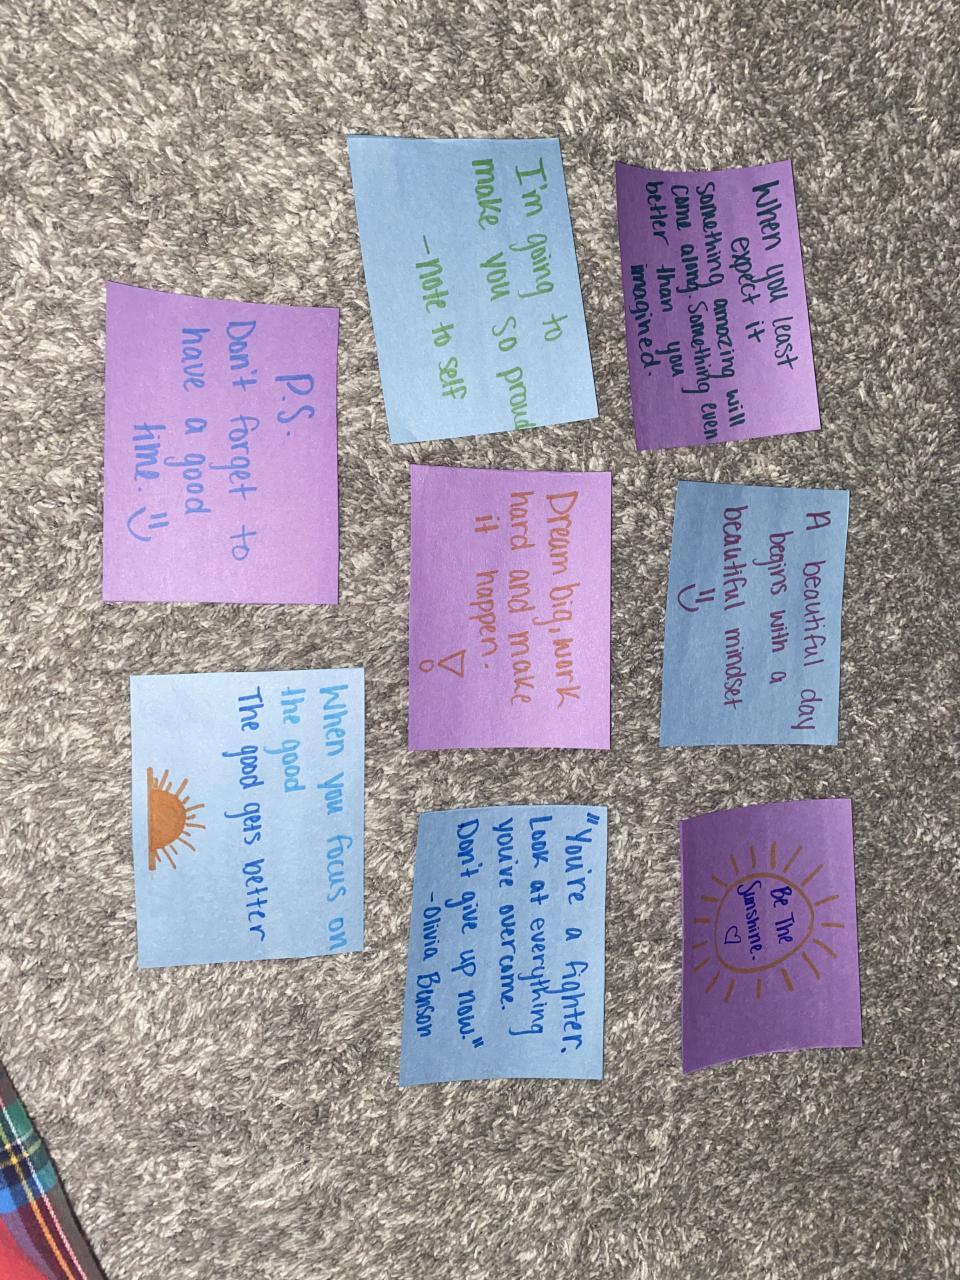 When you least
expect it
something amazing will
come along. Something even
better than you
imagined.
A beautiful day
begins with a
beautiful mindset
Be The
Sunshine.
I'm going to
make you so proud
-note to self
Dream big, work
hard and make
it happen.
"You're a fighter.
Look at everything
you've overcome.
Don't give up now."
-Olivia Benson
P.S.
Don't forget to
have a good
time.
When you focus on
the good
The good gets better